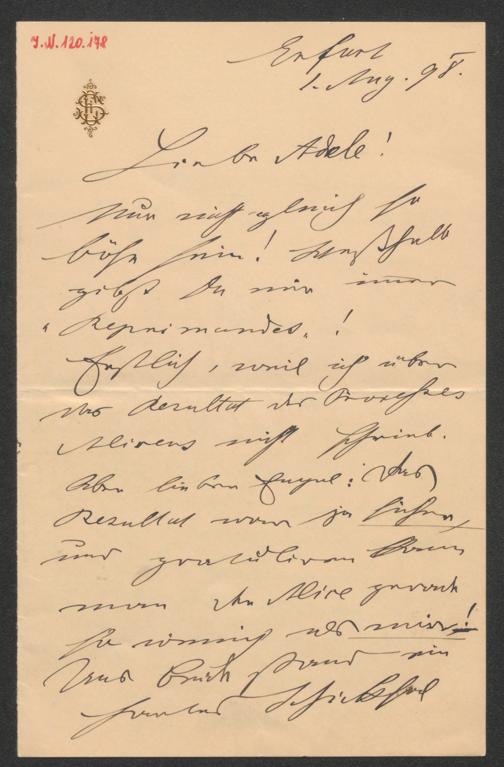 J.N. 120.178
Erfurt
1. Aug. 98.
Liebe Adele!
Nur nicht gleich so
böse sein! Weßhalb
gibst Du mir immer
„Reprimandes"!
Erstlich, weil ich über
das Resultat des Processes
Alicens nicht schrieb.
Aber lieber Engel: Das
Resultat war ja sicher,
und gratuliren kann
man der Alice gerade
so wenig als mir!
Uns beide stand ein
Schicksal